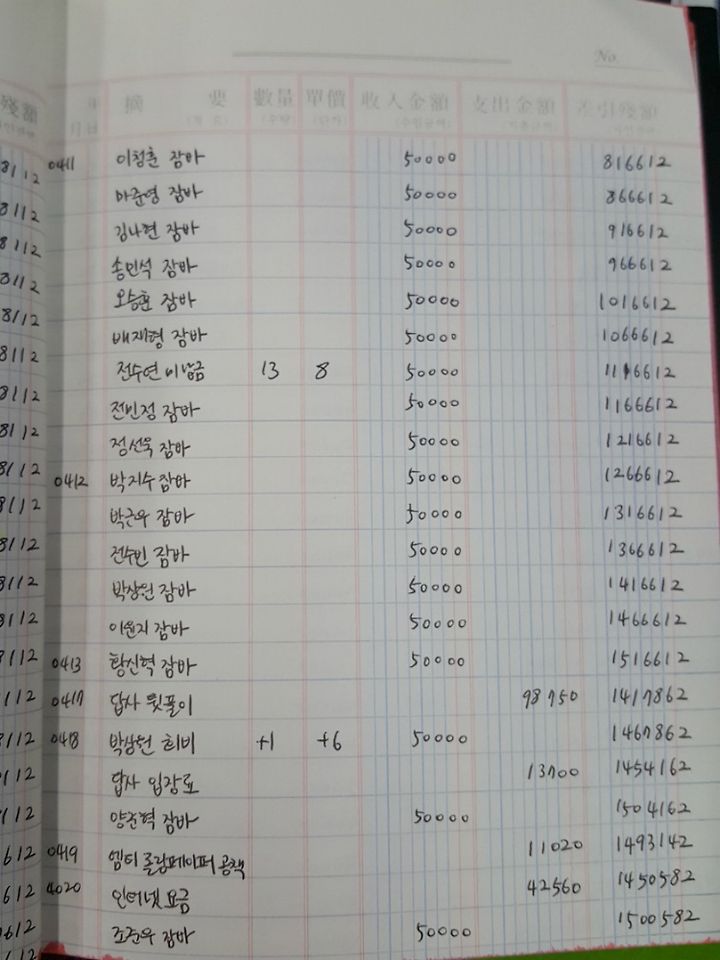 No.
年 月日 摘要 數量 單價 收入金額 支出金額 差引殘額
0411 이청훈 잠바 50000 816612
마준영 잠바 50000 866612
김나현 잠바 50000 916612
송민석 잠바 50000 966612
오승훈 잠바 50000 1016612
배재형 잠바 50000 1066612
전수연 미납금 13 8 50000 1116612
전민정 잠바 50000 1166612
정선욱 잠바 50000 1216612
0412 박지수 잠바 50000 1266612
박근우 잠바 50000 1316612
전수빈 잠바 50000 1366612
박상원 잠바 50000 1416612
이윤지 잠바 50000 1466612
0413 황신혁 잠바 50000 1516612
0417 답사 뒷풀이 98750 1417862
0418 박상현 회비 +1 +6 50000 1467862
답사 입장료 13700 1454162
양준혁 잠바 50000 1504162
0419 엠티 롤링페이퍼 공책 11020 1493142
4020 인터넷 요금 42560 1450582
조준우 잠바 50000 1500582